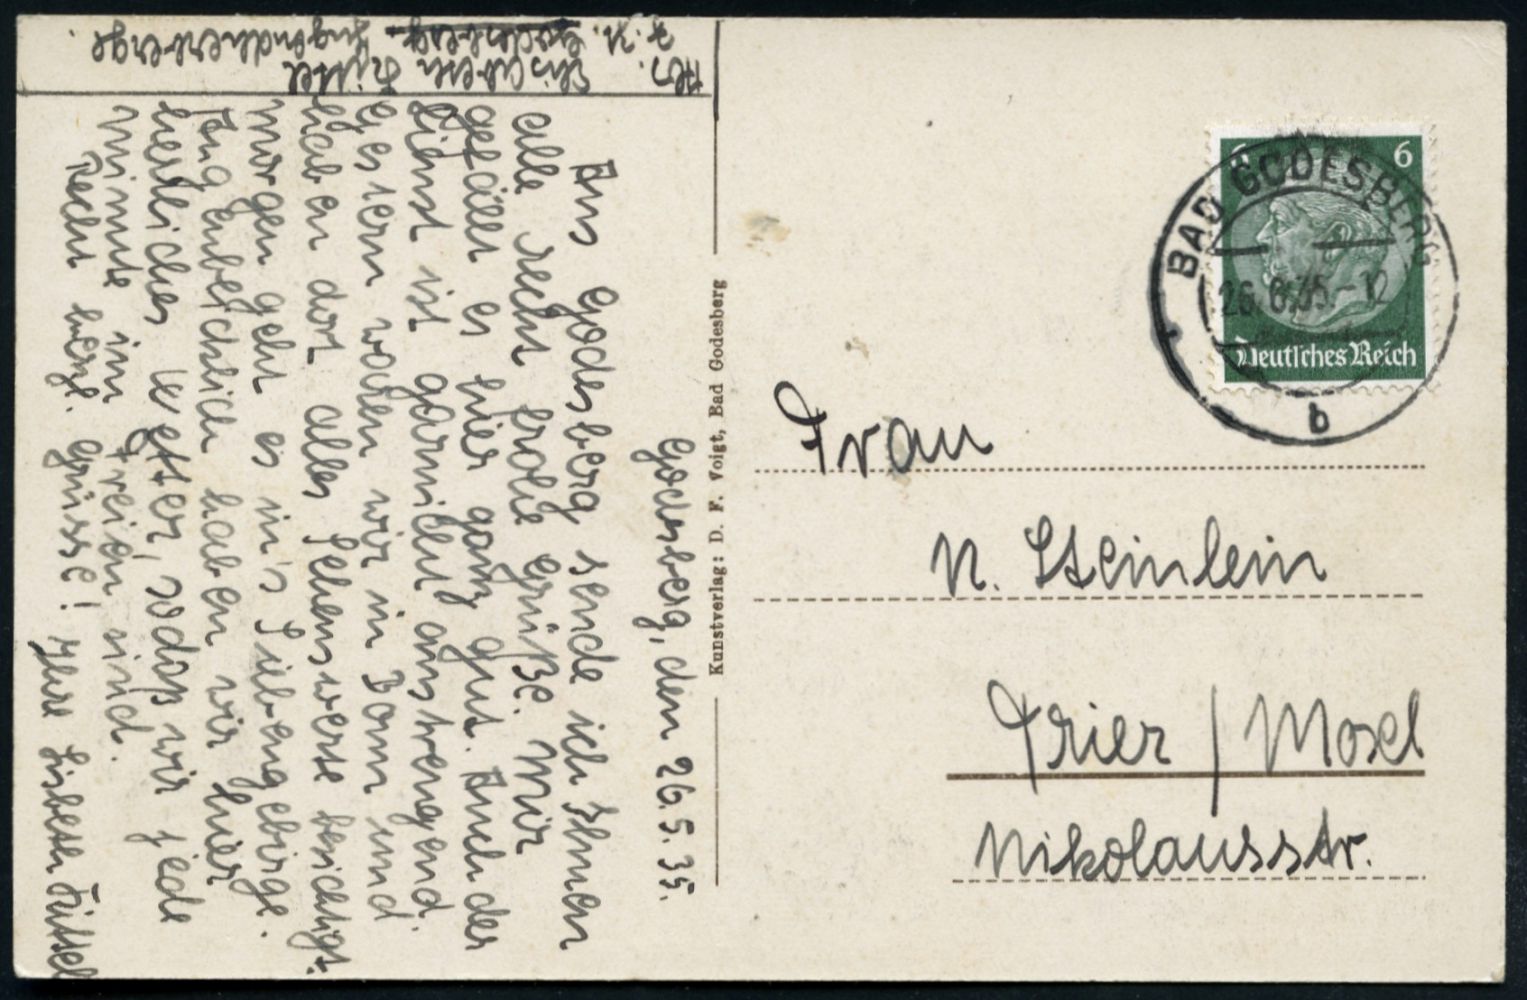 Abs. Elisabeth Kittel
z. Zt. Godesberg. Jugendherberge.
Godesberg, den 26.5.35.
Aus Godesberg sende ich Ihnen
alle recht frohe Grüße. Mir
gefällt es hier ganz gut. Auch der
Dienst ist garnicht anstrengend.
Gestern waren wir in Bonn und
haben dort alles Sehenswerte besichtigt.
Morgen geht es in's Siebengebirge.
haben wir hier
herrliches Wetter, sodaß wir jede
Minute im Freien sind.
Recht herzl. Grüsse! Ihre Lisbeth Kittel
Kunstverlag: D. F. Voigt, Bad Godesberg
6 6
Deutsches Reich
BAD GODESBERG
26.6.35-12
b
Frau
N. Steinlein
Trier / Mosel
Nikolausstr.